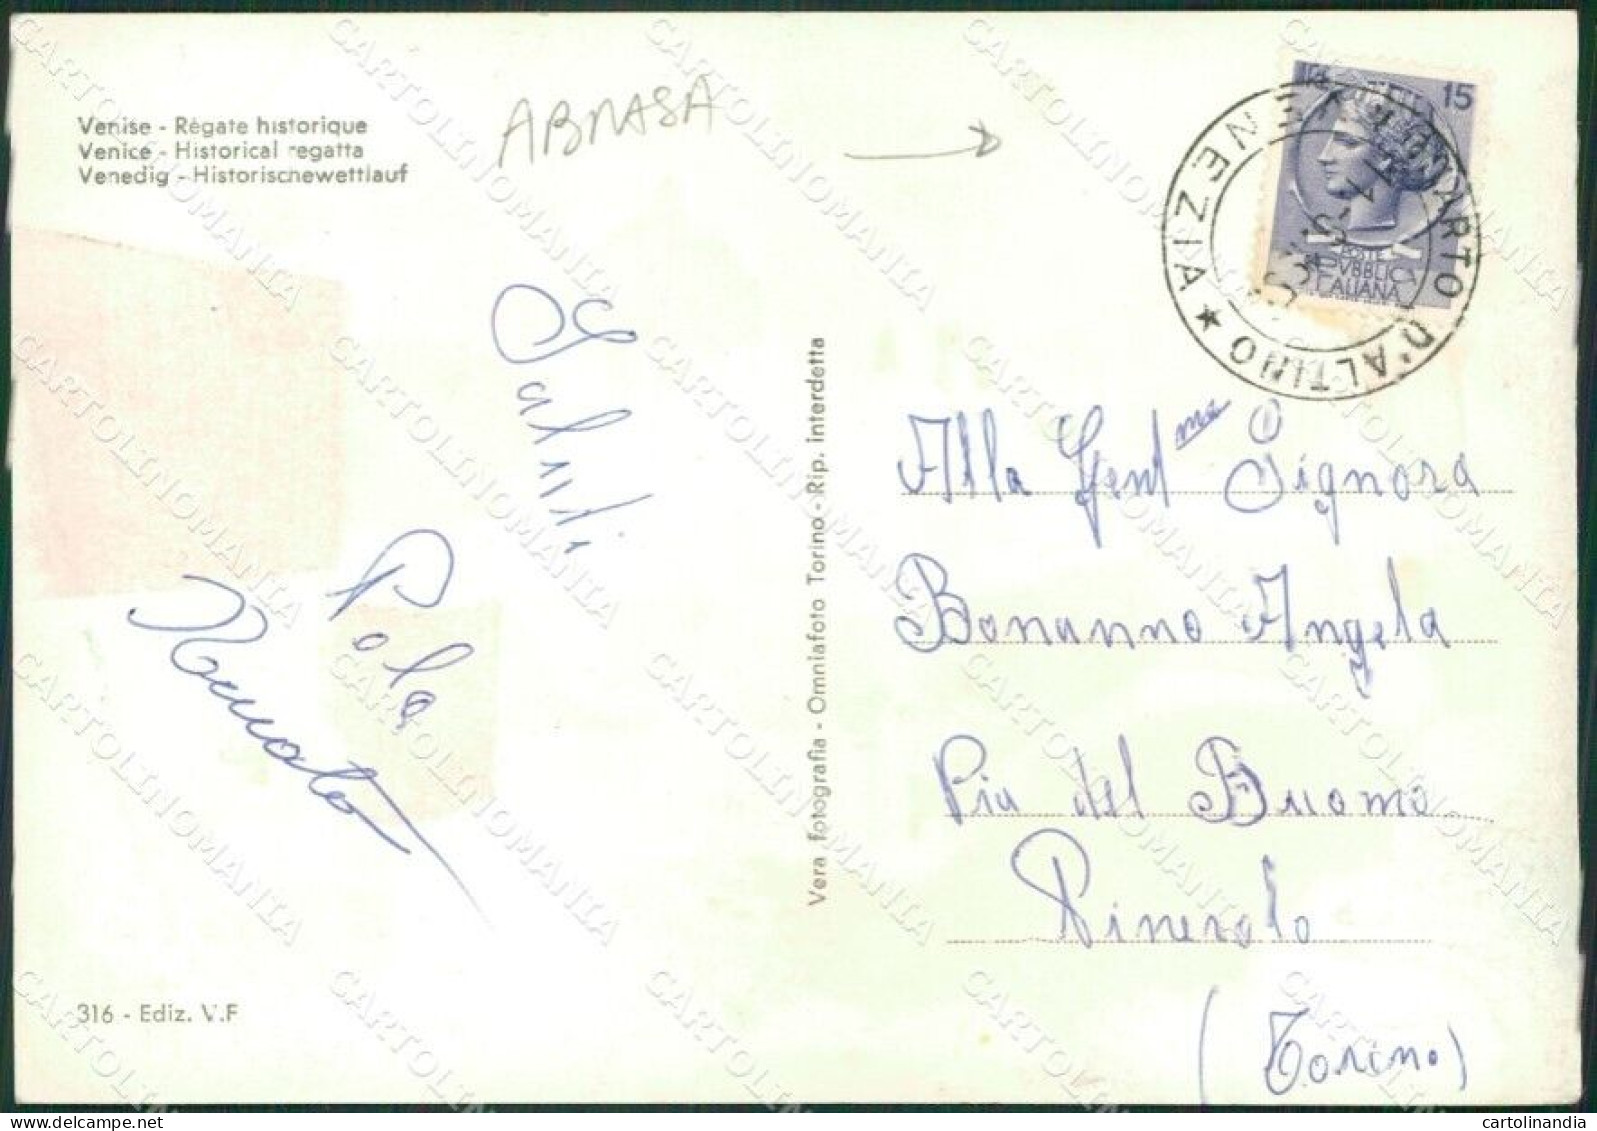 Venise - Régate historique
Venice - Historical regatta
Venedig - Historischewettlauf
ABRASA
15
POSTE
ITALIANA
QUARTO D'ALTINO ★ VENEZIA
Saluti
Pola
Renato
Vera fotografia - Omniafoto Torino - Rip. interdetta
Alla Gent ma Signora
Bonanno Angela
Pia del Duomo
Pinerolo
(Torino)
316 - Ediz. V.F
CARTOLINOMANIA
cartolinandia